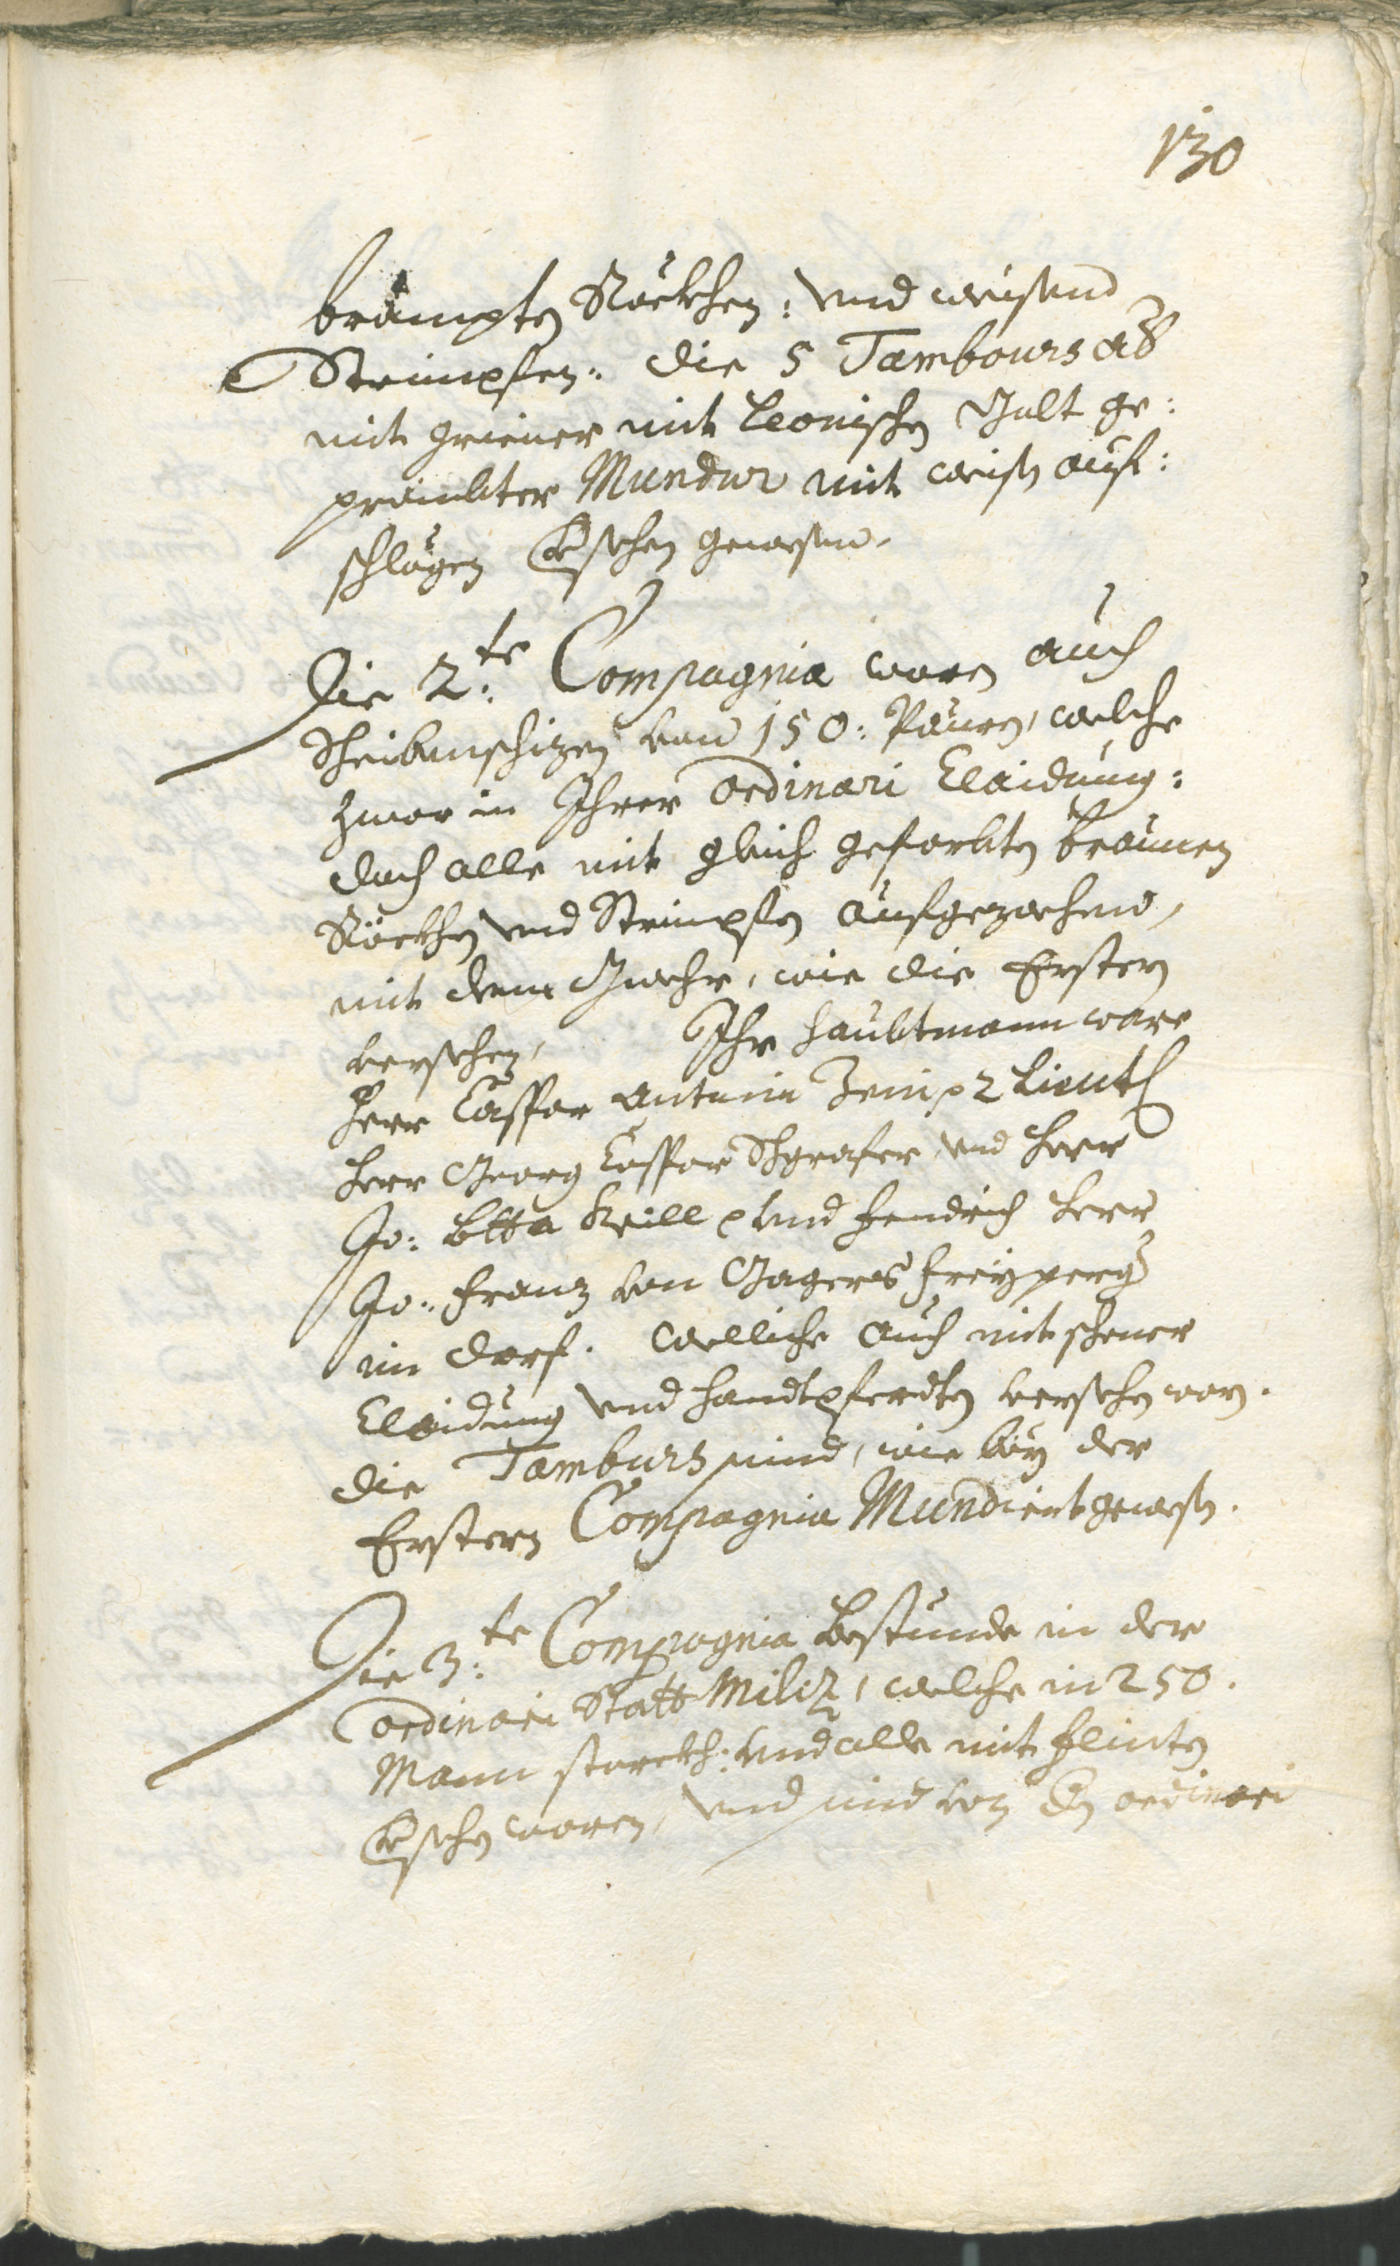 130
brämpten Röckhen: und weissen
Strimpfen: die 5 Tambours aber
mit griener mit Leonischen Golt ge:
prämbter Mundur mit weissen auf:
schlägen versehen gewesen.
Die 2.te Compagnia waren auch
Scheibenschizen von 150: Paurn, welche
zwar in Ihrer ordinari Claidung:
doch alle mit gleich gefarbten braunen
Röckhen und Strimpfen aufgezochen,
mit dem Gwehr, wie die Ersten
versehen, Ihr haubtmann ware
Herr Caspar Antoni Lieut:
Herr Georg Caspar und Herr
Jo: Btta Krill und fendrich Herr
Jo: Franz von Gagers Freyperg
im Dorf. welliche auch mit schener
Claidung und handtpferdten versehen warn.
die Tamburs seind, wie bey der
Erstern Compagnia Mundiert gewesen.
Die 3:te Compagnia bestunde in der
ordinari Statt Militz, welche in 250.
Mann starckh: und alle mit flinten
versehen waren, und seind von den ordinari